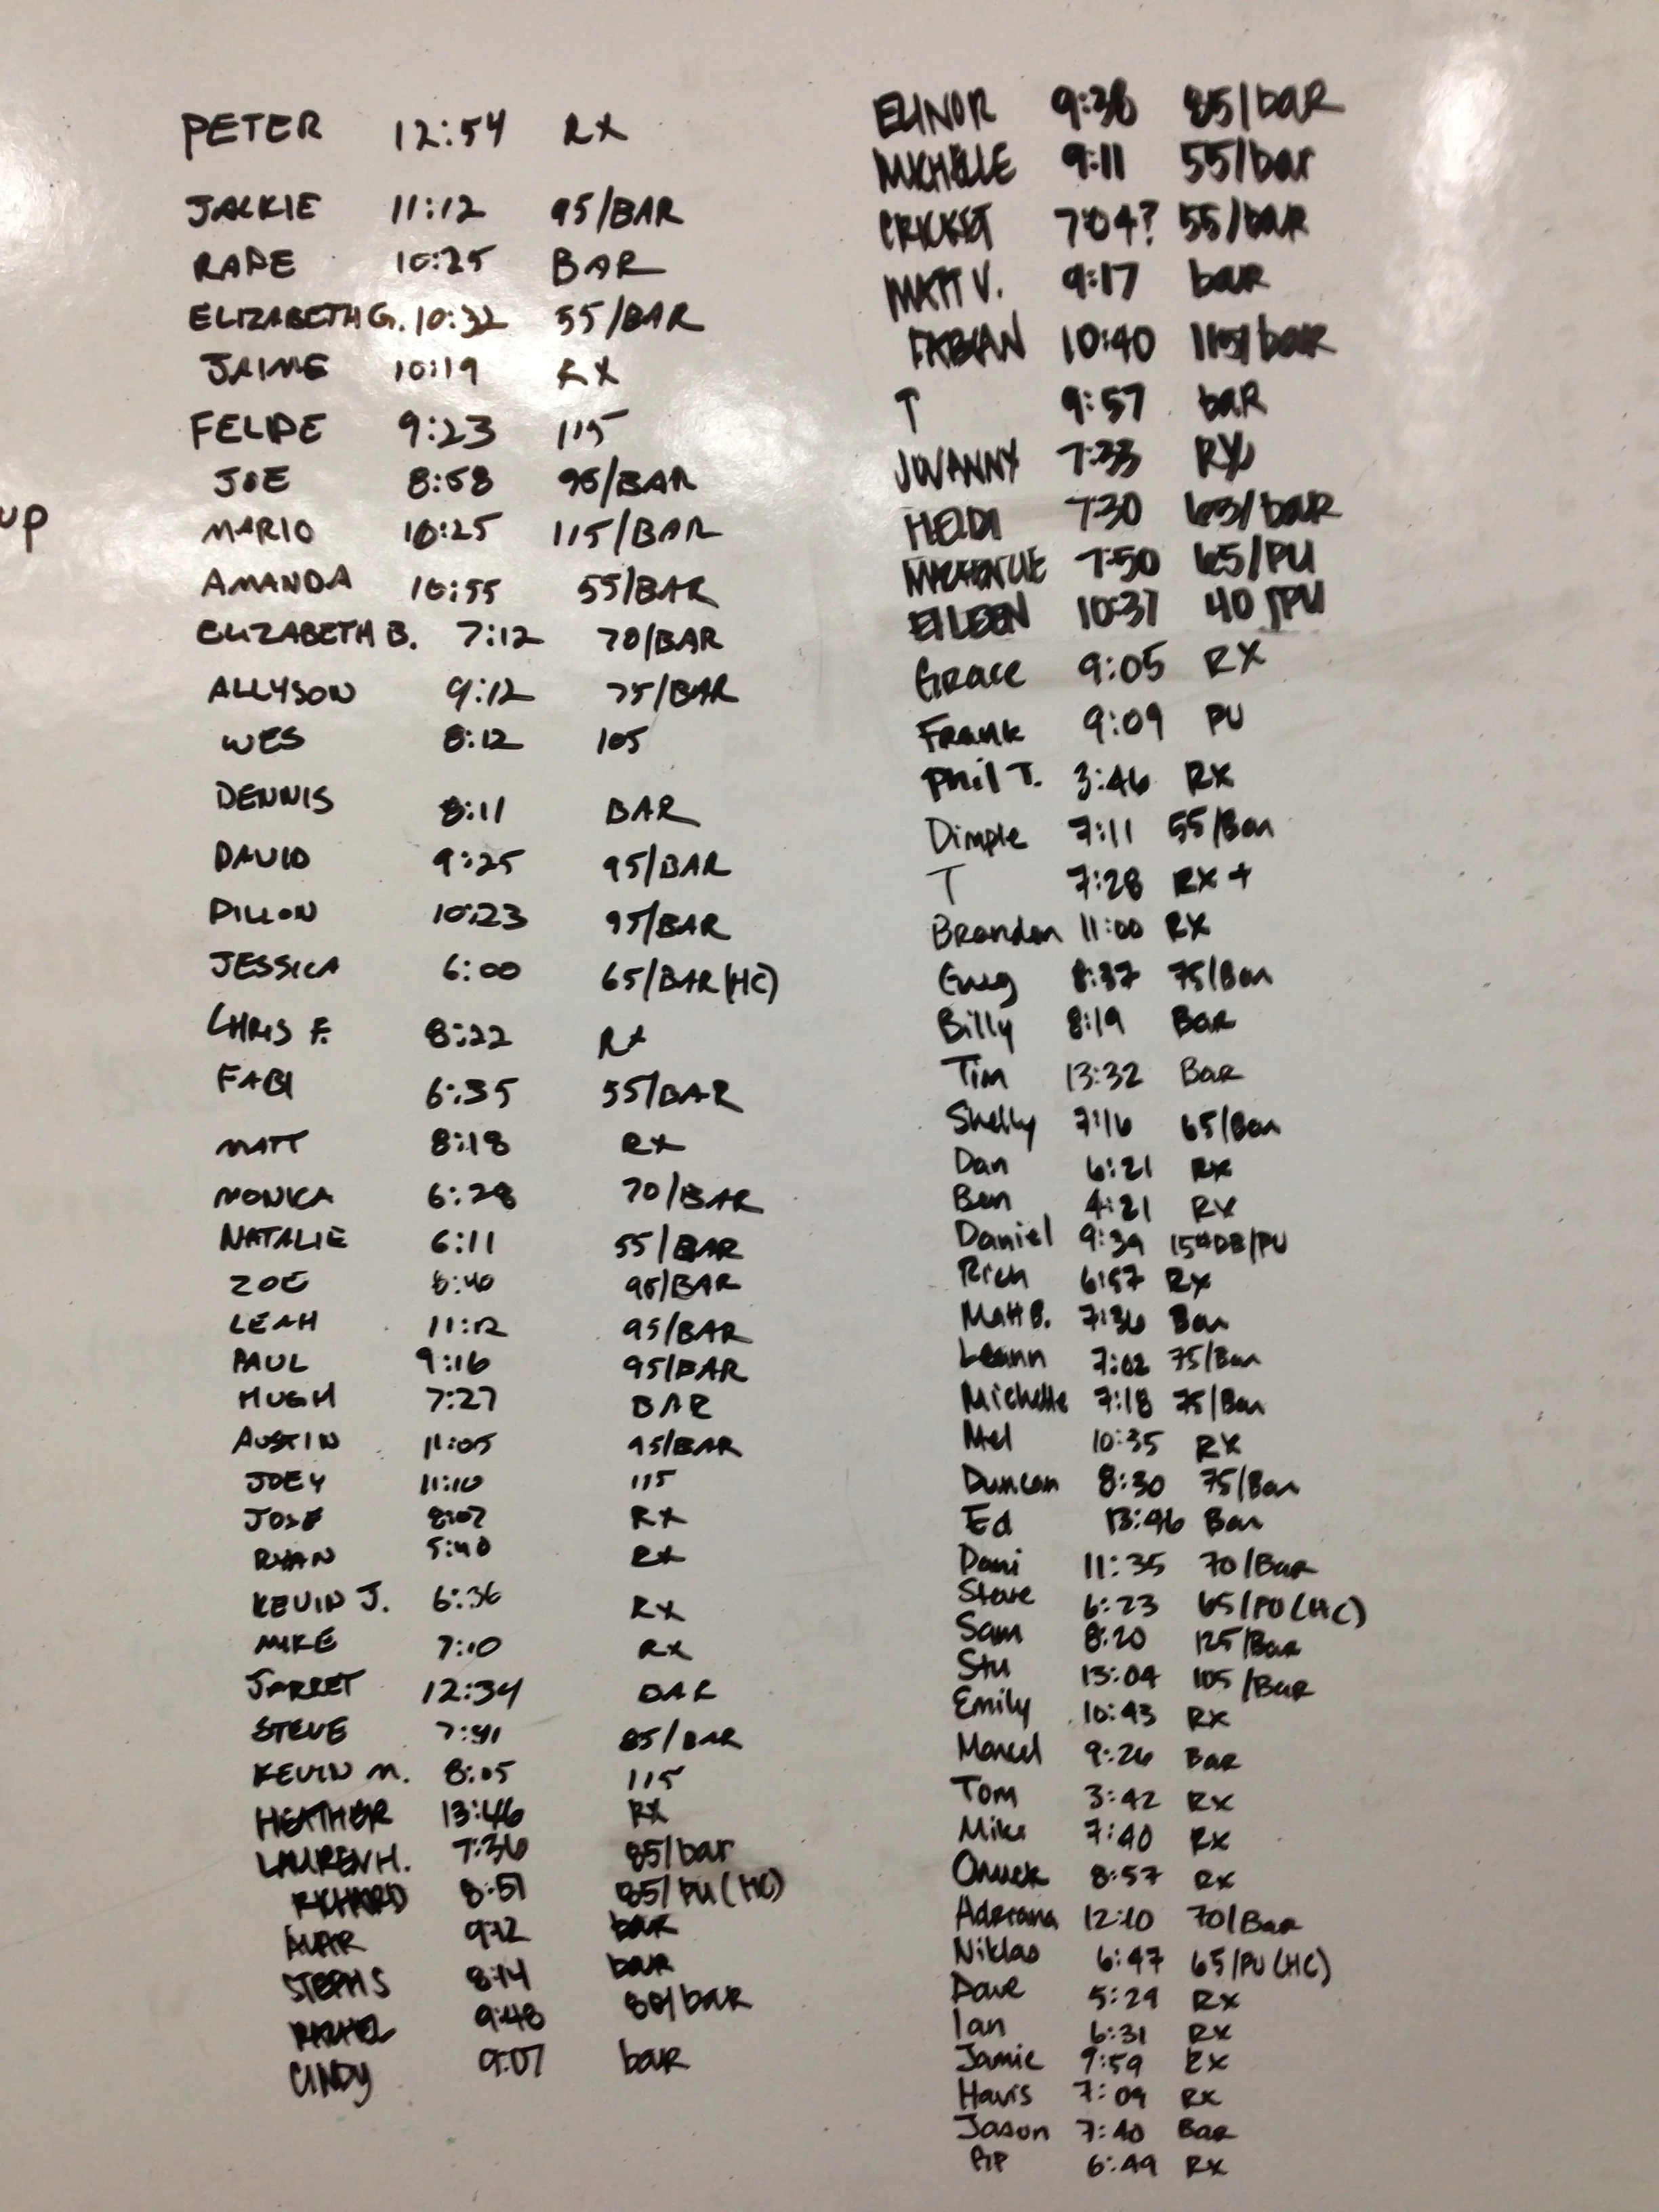 PETER 12:54 RX
JACKIE 11:12 95/BAR
RAPE 10:25 BAR
ELIZABETH G. 10:32 55/BAR
JAIME 10:19 RX
FELIPE 9:23 115
JOE 8:58 95/BAR
up
MARIO 10:25 115/BAR
AMANDA 10:55 55/BAR
ELIZABETH B. 7:12 70/BAR
ALLYSON 9:12 75/BAR
WES 8:12 105
DENNIS 8:11 BAR
DAVID 9:25 95/BAR
DILLON 10:23 95/BAR
JESSICA 6:00 65/BAR (HC)
CHRIS F. 8:22 RX
FABI 6:35 55/BAR
MATT 8:18 RX
MONICA 6:28 70/BAR
NATALIE 6:11 55/BAR
ZOE 8:40 95/BAR
LEAH 11:12 95/BAR
PAUL 9:16 95/BAR
HUGH 7:27 BAR
AUSTIN 11:05 95/BAR
JOEY 11:10 115
JOSE 8:07 RX
RYAN 5:40 RX
KEVIN J. 6:36 RX
MIKE 7:10 RX
JARRET 12:34 BAR
STEVE 7:41 85/BAR
KEVIN M. 8:05 115
HEATHER 13:46 RX
LAUREN H. 7:36 85/bar
RICHARD 8:51 85/PU (HC)
9:12 bar
STEPH S 8:14 bar
RACHEL 9:48 80/baR
CINDY 9:07 baR
ELINOR 9:38 85/baR
MICHELLE 9:11 55/bar
CRICKET 7:04? 55/baR
MATT V. 9:17 baR
FABIAN 10:40 115/baR
T 9:57 baR
JOVANNY 7:33 RX
HEIDI 7:30 63/baR
MACKENZIE 7:50 65/PU
EILEEN 10:37 40/PU
Grace 9:05 RX
Frank 9:09 PU
Phil T. 3:46 RX
Dimple 7:11 55/Bar
T 7:28 RX +
Brandon 11:00 RX
Greg 8:37 75/Bar
Billy 8:19 Bar
Tim 13:32 Bar
Shelly 7:16 65/Bar
Dan 6:21 RX
Ben 4:21 RX
Daniel 9:39 15#DB/PU
Rich 6:57 RX
Matt B. 7:36 Bar
Leann 7:02 75/Bar
Michelle 7:18 75/Bar
Mel 10:35 RX
Duncan 8:30 75/Bar
Ed 13:46 Bar
Dani 11:35 70/Bar
Steve 6:23 65/PU (HC)
Sam 8:20 125/Bar
Stu 13:04 105/Bar
Emily 10:43 Rx
Marcel 9:26 Bar
Tom 3:42 Rx
Mike 7:40 Rx
Chuck 8:57 Rx
Adriana 12:10 70/Bar
Niklas 6:47 65/PU (HC)
Dave 5:29 Rx
Ian 6:31 Rx
Jamie 9:59 Rx
Havis 7:09 Rx
Jason 7:40 Bar
PIP 6:49 Rx